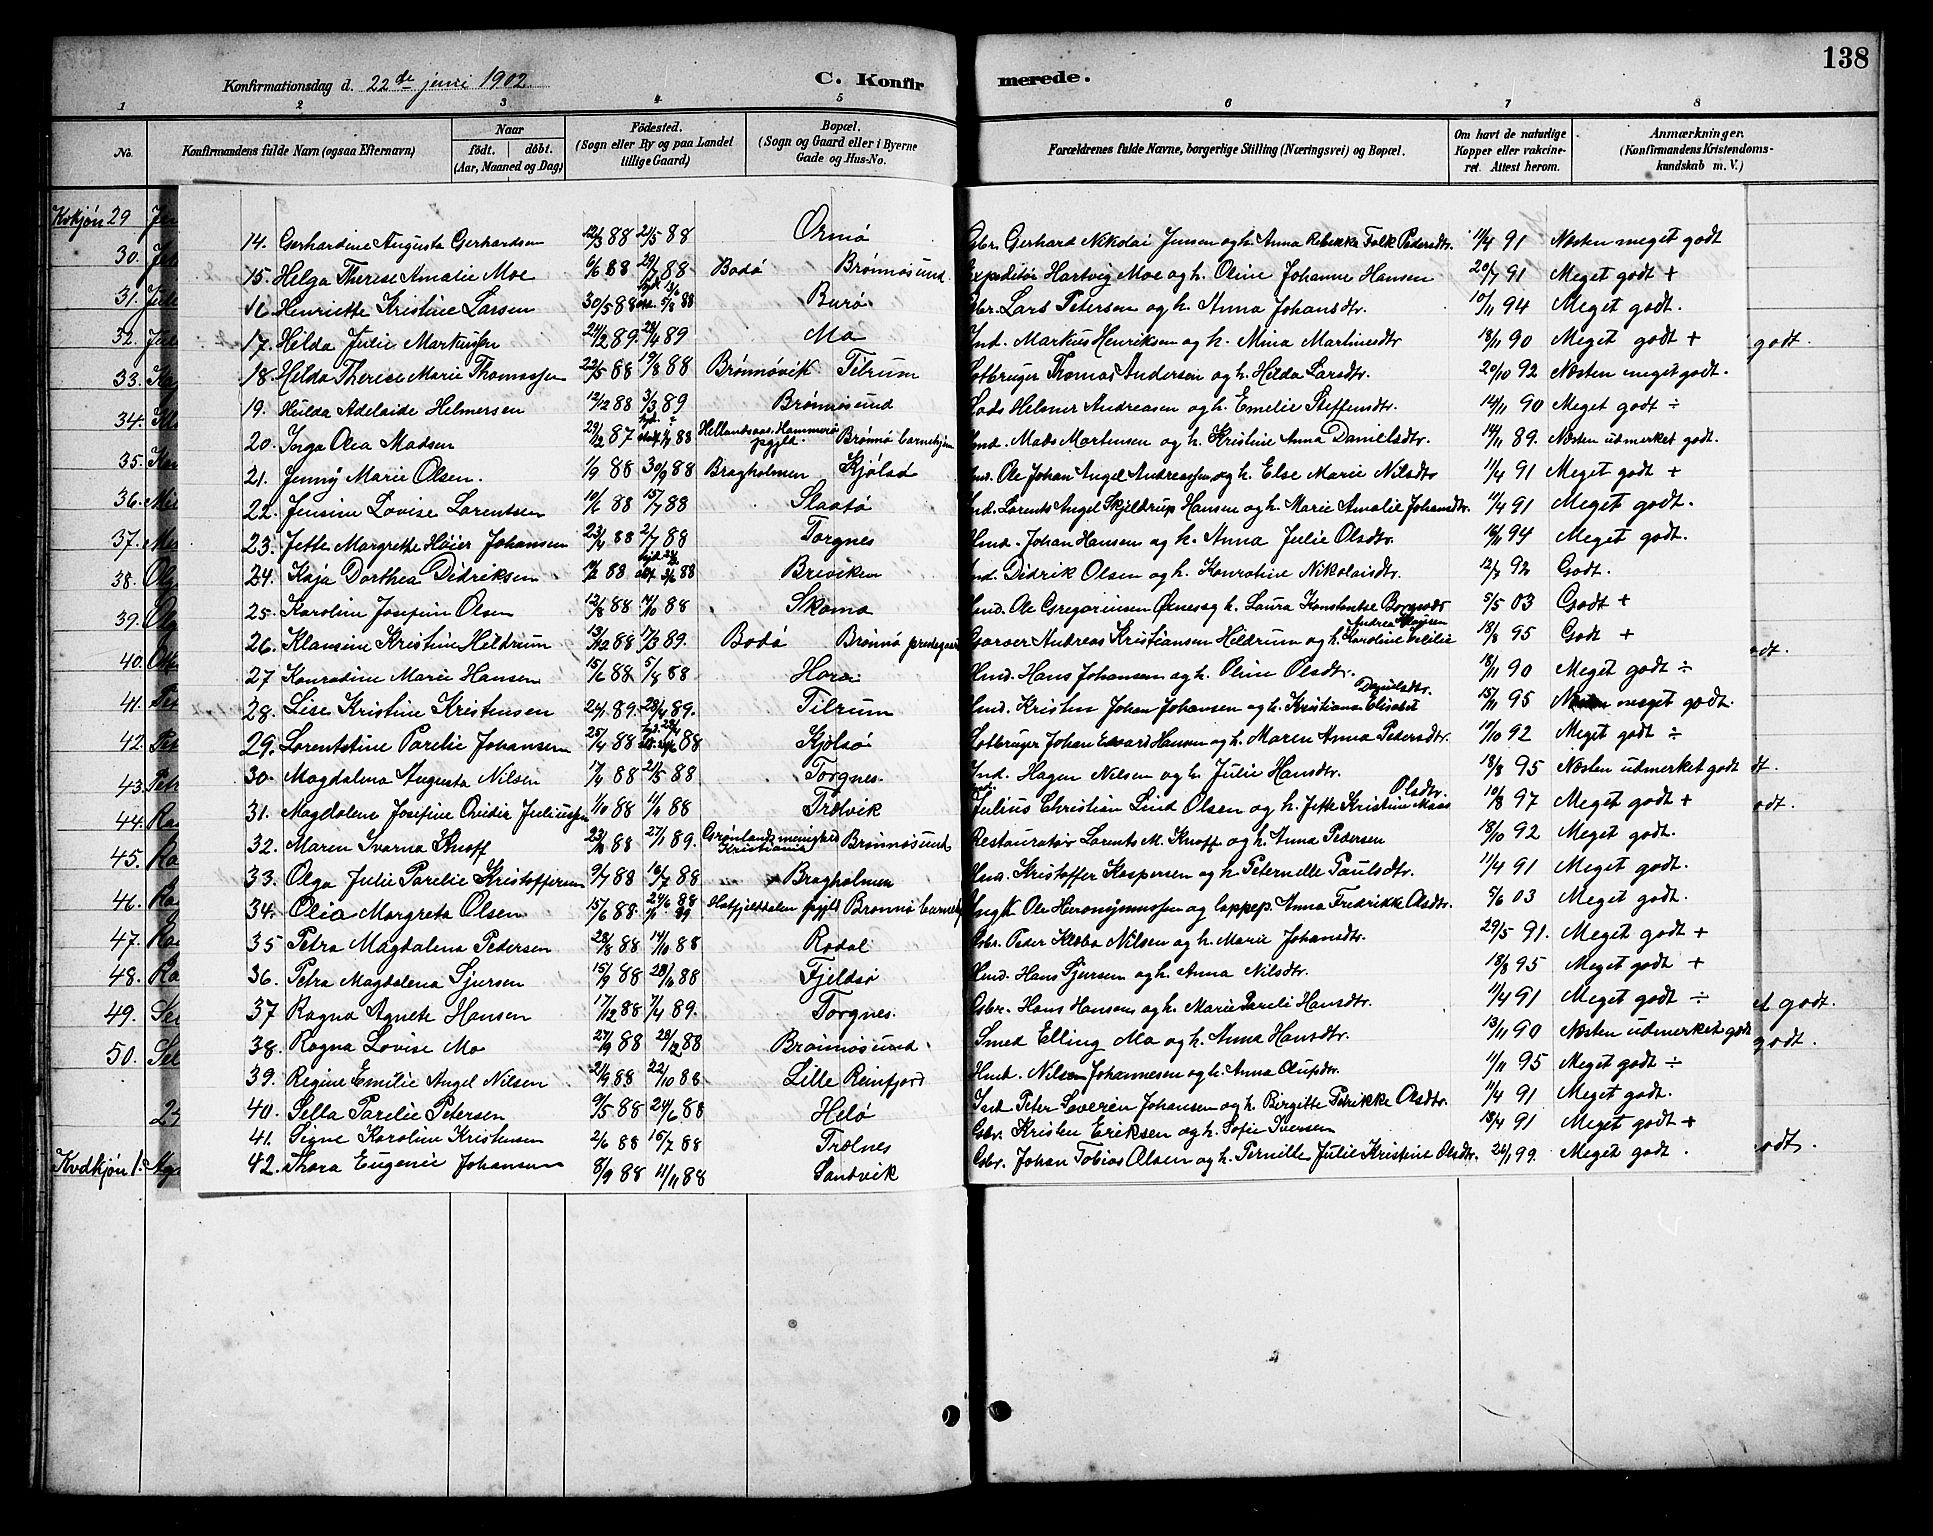 138
Konfirmationsdag d. 22de juni 1902. C. Konfirmerede.
1 2 3 4 5 6 7 8
No. Konfirmandens fulde Navn (ogsaa Efternavn) Naar født. døbt. (Aar, Maaned og Dag) Fødested. (Sogn eller By og paa Landet tillige Gaard) Bopæl. (Sogn og Gaard eller i Byerne Gade og Hus-No. Forældrenes fulde Navne, borgerlige Stilling (Næringsvei) og Bopæl. Om havt de naturlige Kopper eller vakcineret. Attest herom. Anmærkninger. (Konfirmandens Kristendomskundskab m. V.)
29
14. Gerhardine Augusta Gerhardsen 12/3 88 21/5 88 Ormø Gbr. Gerhard Nikolai Jensen og h. Anna Rebekka Falk Pedersdtr. 11/4 91 Næsten meget godt
30.
15. Helga Therese Amalie Moe 6/6 88 29/7 88 Bodø Brønnøsund Expeditør Hartvig Moe og h. Oline Johanne Hansen 20/7 91 Meget godt +
31.
16. Henriette Kristine Larsen 30/5 88 88 Burø Gbr. Lars Petersen og h. Anna Johansdtr. 10/11 94 Meget godt.
32.
17. Hilda Julie Markussen 24/2 89. 28/4 89 Mo Ind. Markus Henriksen og h. Mina Martinusdtr 18/11 90 Meget godt + godt.
33.
18. Hilda Therese Marie Thomassen 22/5 88 19/8 88 Brønnøvik Tilrum Lotbruger Thomas Andersen og h. Hilda Larsdtr. 20/10 92 Næsten meget godt.
34.
19. Hulda Adelaide Helmersen 12/12 88 3/3 89 Brønnøsund Lods Helmer Andreasen og h. Emelie Steffensdtr. 14/11 90 Meget godt ÷
20. Inga Olea Madsen 29/12 87 88 Hammerø pgjld. Brønnø barnehjem Ind. Mads Mortensen og h. Kristine Anna Danielsdtr. 14/11 89. Næsten udmerket godt.
35.
21. Jenny Marie Olsen. 1/9 88 30/9 88 Bragholmen Kjølsø Ind. Ole Johan Angel Andreassen og h. Else Marie Nilsdtr 11/4 91 Meget godt +
36.
22. Jensine Lovise Lorentsen 10/6 88 15/7 88 Slaatø Ind. Lorents Angel Skjeldrup Hansen og h. Marie Amalie Johansdtr. 11/4 91 Meget godt.
37.
23. Jette Margrethe Høier Johansen 23/4 88 2/7 88 Torgnes Hmd. Johan Hansen og h. Anna Julie Olsdtr. 94 Meget godt.
38.
24. Kaja Dorthea Didriksen 88 88 Breviken Ind. Didrik Olsen og h. Konradine Nikolaisdtr. 12/7 92 Godt.
39.
25. Karoline Josefine Olsen 12/8 88 7/10 88 Skomo Hmd. Ole Gregoriussen Ørnes og h. Laura Konstantse 5/5 03 Godt +
26. Klausine Kristine Hildrum 13/12 88 17/3 89. Bodø Brønnø Garver Andreas Kristiansen Hildrum og h. Karoline Cecilie 18/8 95 Godt +
40.
27 Konradine Marie Hansen 15/6 88 5/8 88 Horn Hmd. Hans Johansen og h. Oline Olsdtr. 18/11 90 Meget godt ÷
41.
28. Lise Kristine Kristensen 24/1 89. 28/4 89. Tilrum Hmd. Kristen Johan Johansen og h. Kristiana Elisabet Danielsdtr. 15/11 95 meget godt.
42.
29. Lorentstine Parelie Johansen 25/4 88 88 Kjølsø Lotbruger Johan Edvard Hansen og h. Maren Anna Pedersdtr. 10/10 92 Meget godt ÷
43.
30. Magdalena Augusta Nilsen 17/4 88 21/5 88 Torgnes Ind. Hagen Nilsen og h. Julie Hansdtr. 18/8 95 Næsten udmerket godt
44.
31. Magdalene Josefine Ovidie Juliussen 1/10 88 88 Trælvik Julius Christian Lind Olsen og h. Jette Kristine Olsdtr. 10/8 97 Meget godt +
32. Maren Ivarna Knoff 88 27/1 89. Grønlands menighed Kristiania Brønnøsund Restauratør Lorents M. Knoff og h. Anna Pedersen 18/10 92 Meget godt.
45.
33. Olga Julie Parelie Kristoffersen 9/7 88 88 Bragholmen Hmd. Kristoffer Kaspersen og h. Peternelle Paulsdtr. 11/4 91 Meget godt.
46.
34. Olia Margreta Olsen 15/6 88. Hatfjelddalen pgjld Brønnø Ole Hieronymussen og lappep. Anna Fredrikke Olsdtr. 5/6 03 Meget godt.
47.
35 Petra Magdalena Pedersen 28/8 88 14/10 88 Rodal Gbr. Peder Klæbo Nilsen og h. Marie Johansdtr. 29/5 91. Meget godt +
48.
36. Petra Magdalena Sjursen 15/9 88 88 Fjeldsø Hmd. Hans Sjursen og h. Anna Nilsdtr. 18/8 95 Meget godt +
49.
37 Ragna Agnete Hansen 17/12 88 7/4 89. Torgnes. Gbr. Hans Hansen og h. Marie Pareli Hansdtr. 11/4 91 Meget godt ÷ godt.
50.
38. Ragna Lovise Mo 27/9 88 88 Brønnøsund Smed Elling Mo og h. Anna Hansdtr. 13/11 90 Næsten udmerket godt godt.
39. Regine Emilie Angel Nilsen 21/9 88 22/10 88 Lille Reinfjord Hmd. Nils Johannesen og h. Anna Olupsdtr. 11/11 95 Meget godt ÷
40. Sella Parelie Petersen 9/5 88 24/6 88 Helø Ind Peter Severin Johansen og h. Birgitte Petrikke Olsdtr. 11/4 91 Meget godt.
41. Signe Karoline Kristensen 2/6 88 15/7 88 Trælnes Gbr. Kristen Eriksen og h. Sofie Ivensen 18/4 91 Meget godt +
42. Thora Eugenie Johansen 8/9 88 11/11 88 Sandvik Gbr. Johan Tobias Olsen og h. Pernille Julie Kristine Olsdtr. 99. Meget godt.
Kvdkjøn 1.